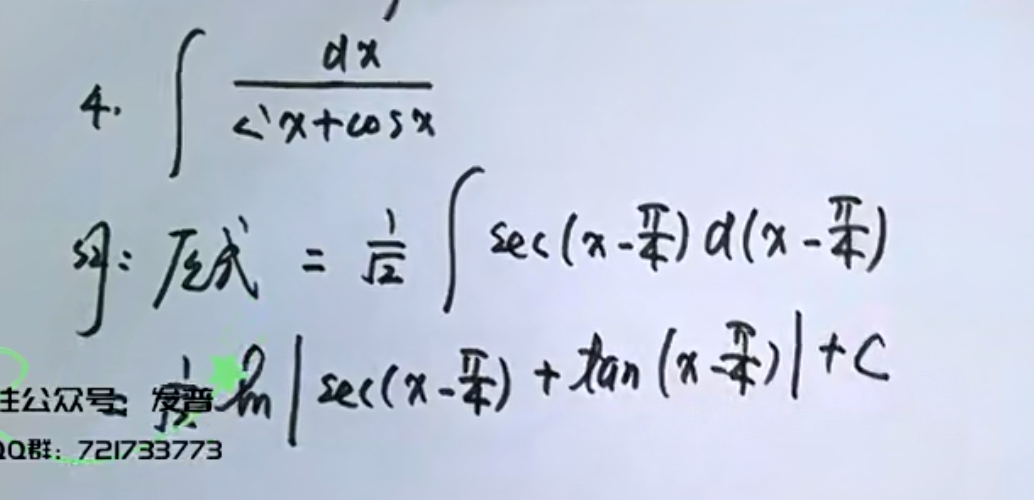 4. ∫ dx / (sin x + cos x)
解: 原式 = 1/√2 ∫ sec(x - π/4) d(x - π/4)
= 1/√2 ln | sec(x - π/4) + tan(x - π/4) | + C
注公众号: 发普
QQ群: 721733773